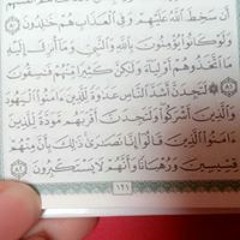 أَن سَخِطَ ٱللَّهُ عَلَيْهِمْ وَفِى ٱلْعَذَابِ هُمْ خَٰلِدُونَ ٨٠
وَلَوْ كَانُوا۟ يُؤْمِنُونَ بِٱللَّهِ وَٱلنَّبِىِّ وَمَآ أُنزِلَ إِلَيْهِ
مَا ٱتَّخَذُوهُمْ أَوْلِيَآءَ وَلَٰكِنَّ كَثِيرًا مِّنْهُمْ فَٰسِقُونَ
٨١ لَتَجِدَنَّ أَشَدَّ ٱلنَّاسِ عَدَٰوَةً لِّلَّذِينَ ءَامَنُوا۟ ٱلْيَهُودَ
وَٱلَّذِينَ أَشْرَكُوا۟ وَلَتَجِدَنَّ أَقْرَبَهُم مَّوَدَّةً لِّلَّذِينَ
ءَامَنُوا۟ ٱلَّذِينَ قَالُوٓا۟ إِنَّا نَصَٰرَىٰ ذَٰلِكَ بِأَنَّ مِنْهُمْ
قِسِّيسِينَ وَرُهْبَانًا وَأَنَّهُمْ لَا يَسْتَكْبِرُونَ ٨٢
١٢١